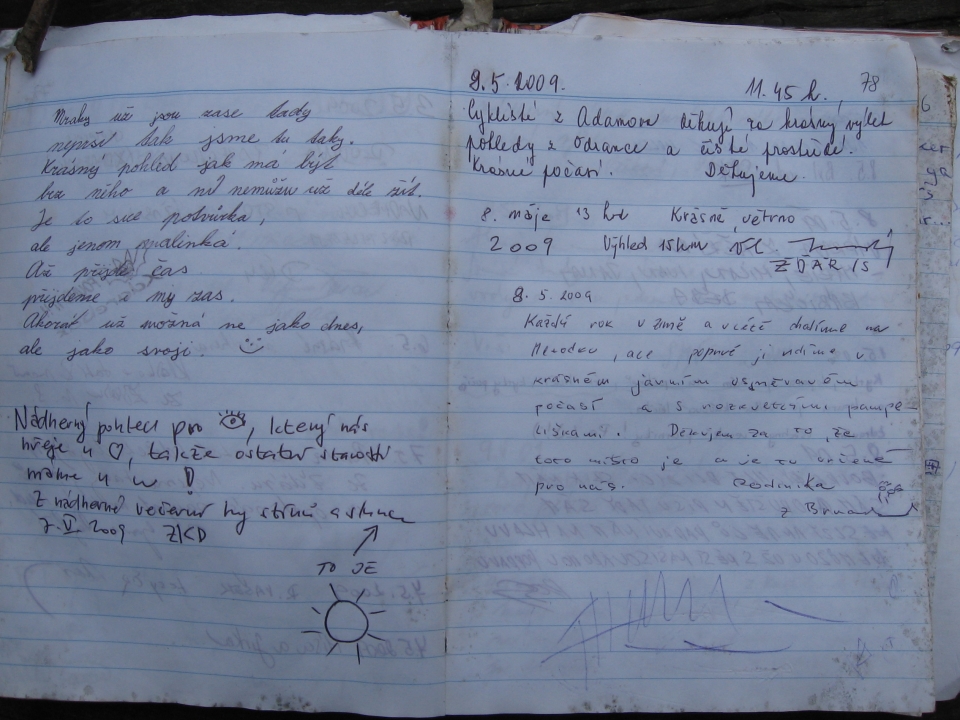 Mraky už jsou zase tady
nepiší tak jsme tu taky.
Krásný pohled jak má být
bez něho a ní nemůžu už dále žít.
Je to sice potvůrka,
ale jenom malinká.
Až přijde čas
přijdeme i my zas.
Akorát už možná ne jako dnes,
ale jako svoji.
Nádherný pohled pro , který nás
hřeje u ♡, takže ostatní starosti
máme u !
Z nádherné večerní hry stínů a slunce
7. V. 2009 ZKD
TO JE
78
9.5.2009. 11.45 h.
Cyklisté z Adamova děkují za krásný výlet
pohledy z a čisté prostředí.
Krásné počasí. Děkujeme.
8. máje 13 hod Krásně, větrno
2009 Výhled 15km
ŽĎÁR /S
9. 5. 2009
Každý rok v zimě a v létě chodíme na
, ale poprvé ji vidíme v
krásném jarním usměvavém
počasí a s rozkvetlými pampe-
liškami. Děkujem za to, že
toto místo je a je tu určené
pro nás. Rodinka
z Brna